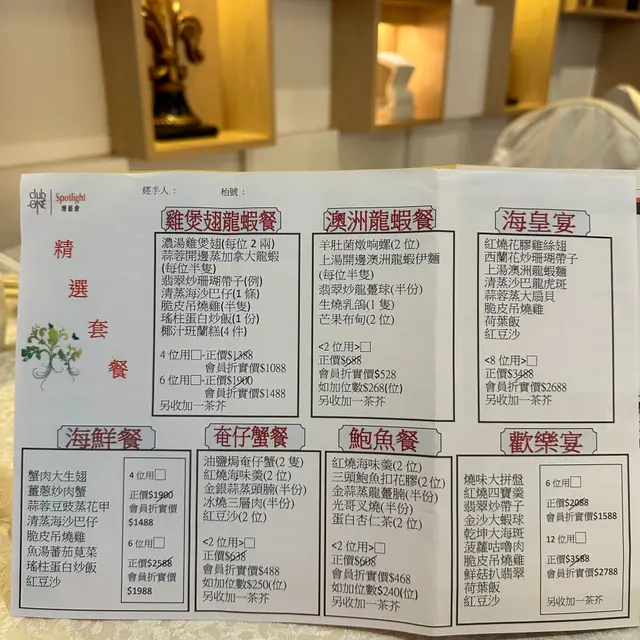 club
ONE
Spotlight
博藝會
經手人：
枱號：
精
選
套
餐
雞煲翅龍蝦餐
濃湯雞煲翅(每位 2 兩)
蒜蓉開邊蒸加拿大龍蝦
(每位半隻)
翡翠炒珊瑚帶子(例)
清蒸海沙巴仔(1 條)
脆皮吊燒雞(半隻)
瑤柱蛋白炒飯(1 份)
椰汁班蘭糕(4 件)
4 位用□-正價$1388
會員折實價$1088
6 位用□-正價$1900
會員折實價$1488
另收加一茶芥
澳洲龍蝦餐
羊肚菌燉响螺(2 位)
上湯開邊澳洲龍蝦伊麵
(每位半隻)
翡翠炒龍躉球(半份)
生燒乳鴿(1 隻)
芒果布甸(2 位)
<2 位用>□
正價$688
會員折實價$528
如加位數$268(位)
另收加一茶芥
海皇宴
紅燒花膠雞絲翅
西蘭花炒珊瑚帶子
上湯澳洲龍蝦麵
清蒸沙巴龍虎斑
蒜蓉蒸大扇貝
脆皮吊燒雞
荷葉飯
紅豆沙
<8 位用>□
正價$3488
會員折實價$2688
另收加一茶芥
海鮮餐
蟹肉大生翅
薑蔥炒肉蟹
蒜蓉豆豉蒸花甲
清蒸海沙巴仔
脆皮吊燒雞
魚湯蕃茄莧菜
瑤柱蛋白炒飯
紅豆沙
4 位用□
正價$1900
會員折實價
$1488
6 位用□
正價$2588
會員折實價
$1988
奄仔蟹餐
油鹽焗奄仔蟹(2 隻)
紅燒海味羹(2 位)
金銀蒜蒸頭腩(半份)
冰燒三層肉(半份)
紅豆沙(2 位)
<2 位用>□
正價$638
會員折實價$488
如加位數$250(位)
另收加一茶芥
鮑魚餐
紅燒海味羹(2 位)
三頭鮑魚扣花膠(2 位)
金蒜蒸龍躉腩(半份)
光哥叉燒(半份)
蛋白杏仁茶(2 位)
<2 位用>□
正價$608
會員折實價$468
如加位數$240(位)
另收加一茶芥
歡樂宴
燒味大拼盤
紅燒四寶羹
翡翠炒帶子
金沙大蝦球
乾坤大海斑
菠蘿咕嚕肉
脆皮吊燒雞
鮮菇扒翡翠
荷葉飯
紅豆沙
6 位用□
正價$2088
會員折實價$1588
12 位用□
正價$3588
會員折實價$2788
另收加一茶芥